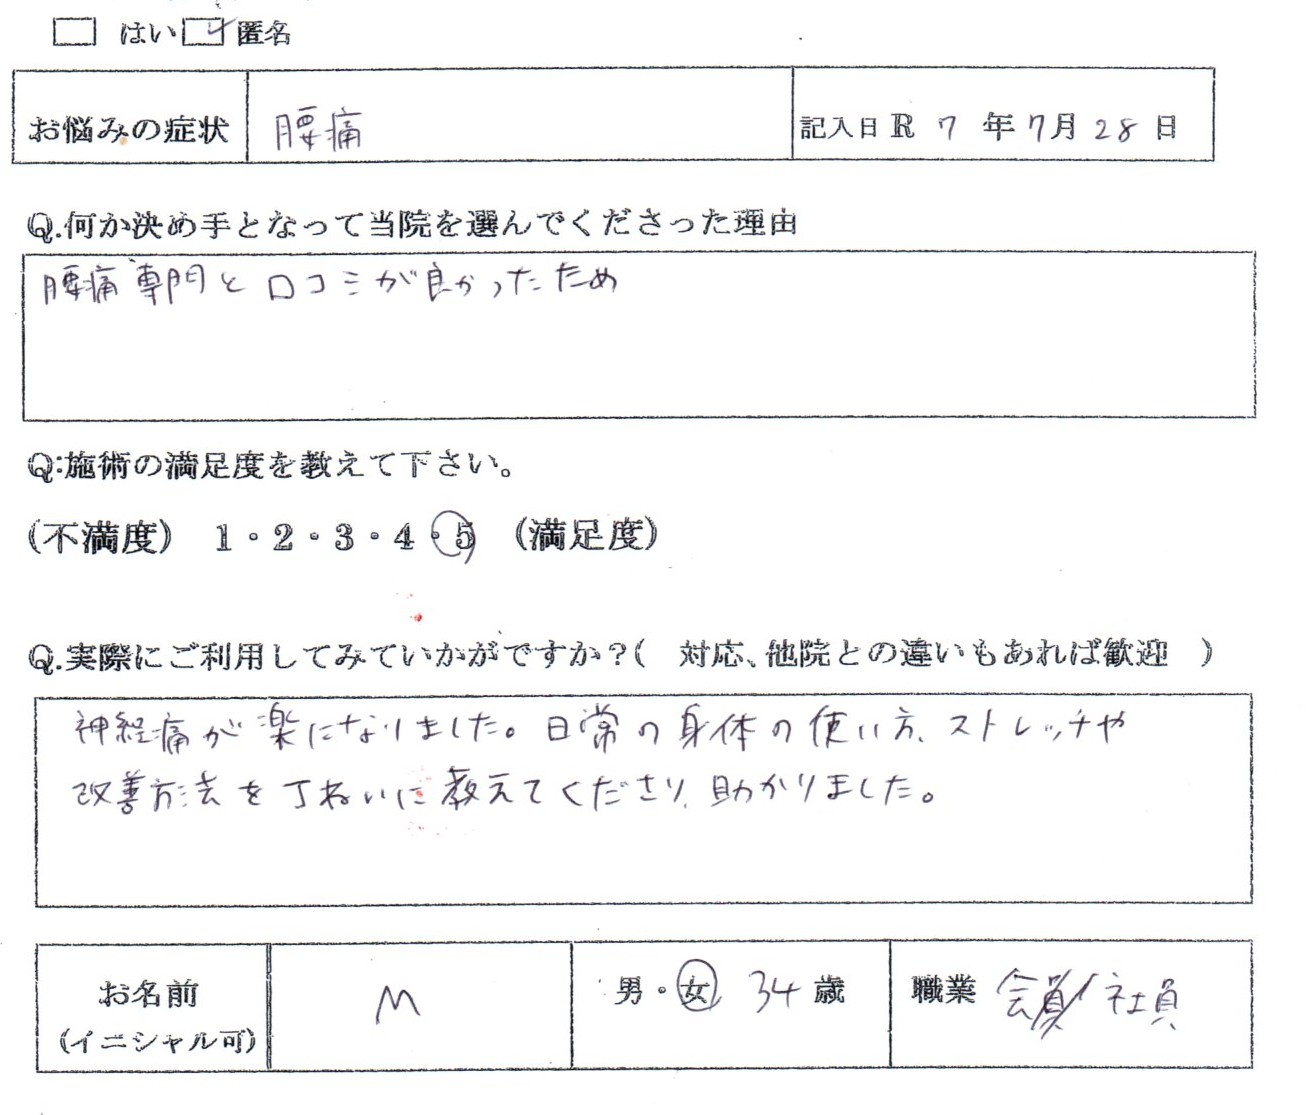 □ はい ☑ 匿名
お悩みの症状 腰痛 記入日 R 7 年 7 月 28 日
Q.何か決め手となって当院を選んでくださった理由
腰痛専門と口コミが良かったため
Q:施術の満足度を教えて下さい。
(不満度) 1・2・3・4・5 (満足度)
Q.実際にご利用してみていかがですか?( 対応、他院との違いもあれば歓迎 )
神経痛が楽になりました。日常の身体の使い方、ストレッチや
改善方法を丁ねいに教えてくださり、助かりました。
お名前 M 男・女 34 歳 職業 会員 社員
(イニシャル可)